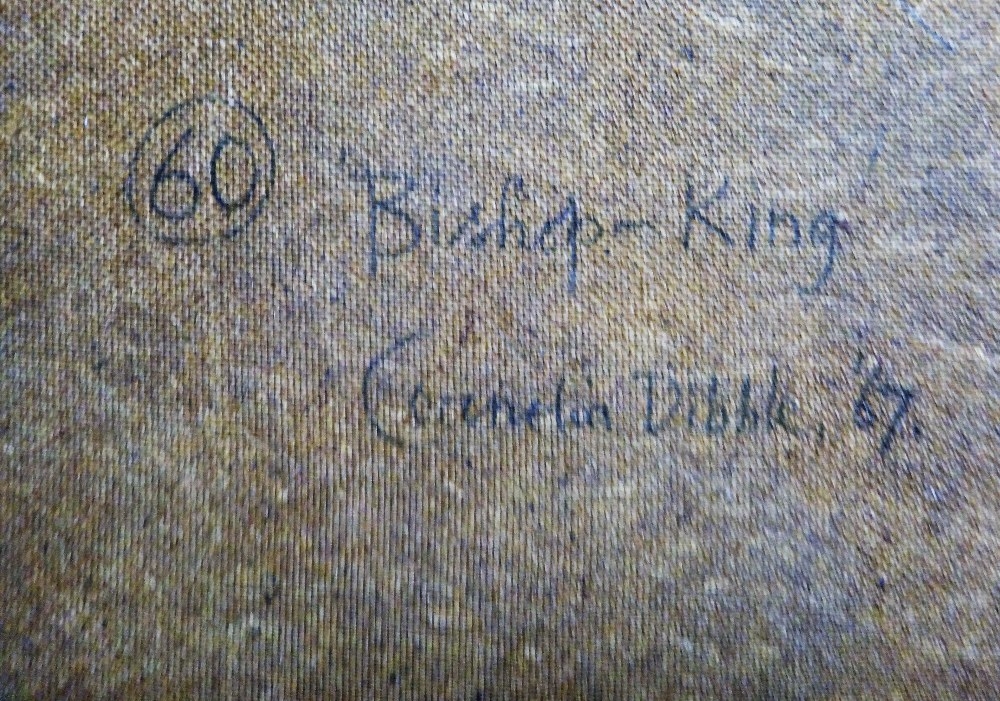 60 Bishop - King
Cornelia Dibble, '67.